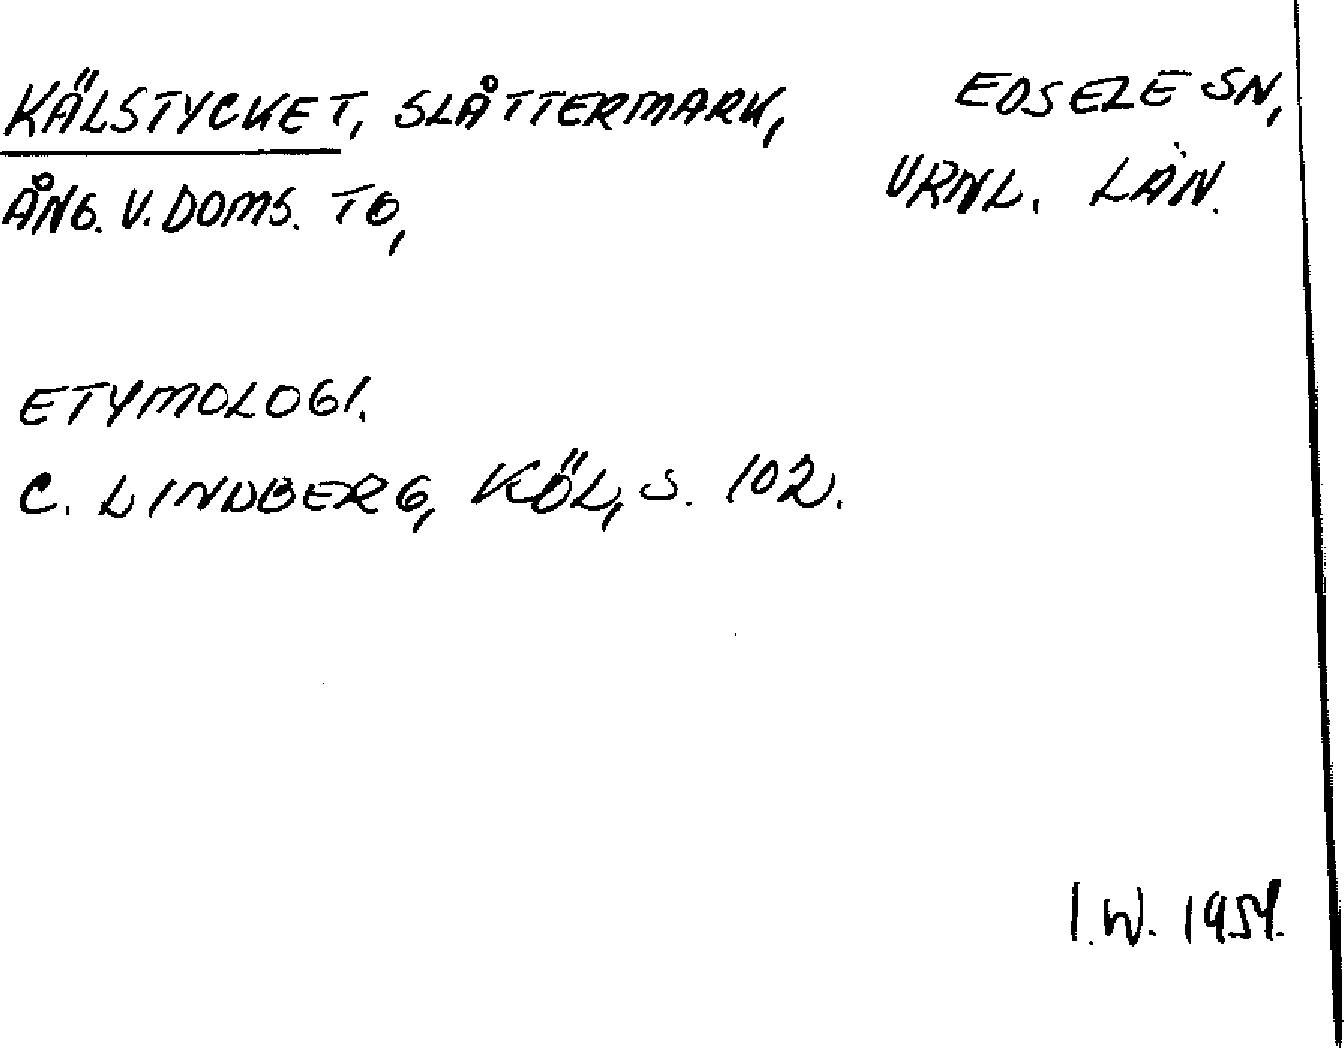 KÄLSTYCKET, SLÅTTERMARK, EDSELE SN,
ÅNG. V. DOMS. TG, VRNL. LÄN.
ETYMOLOGI.
C. LINDBERG, KÖL, S. 102.
I.W. 1954.